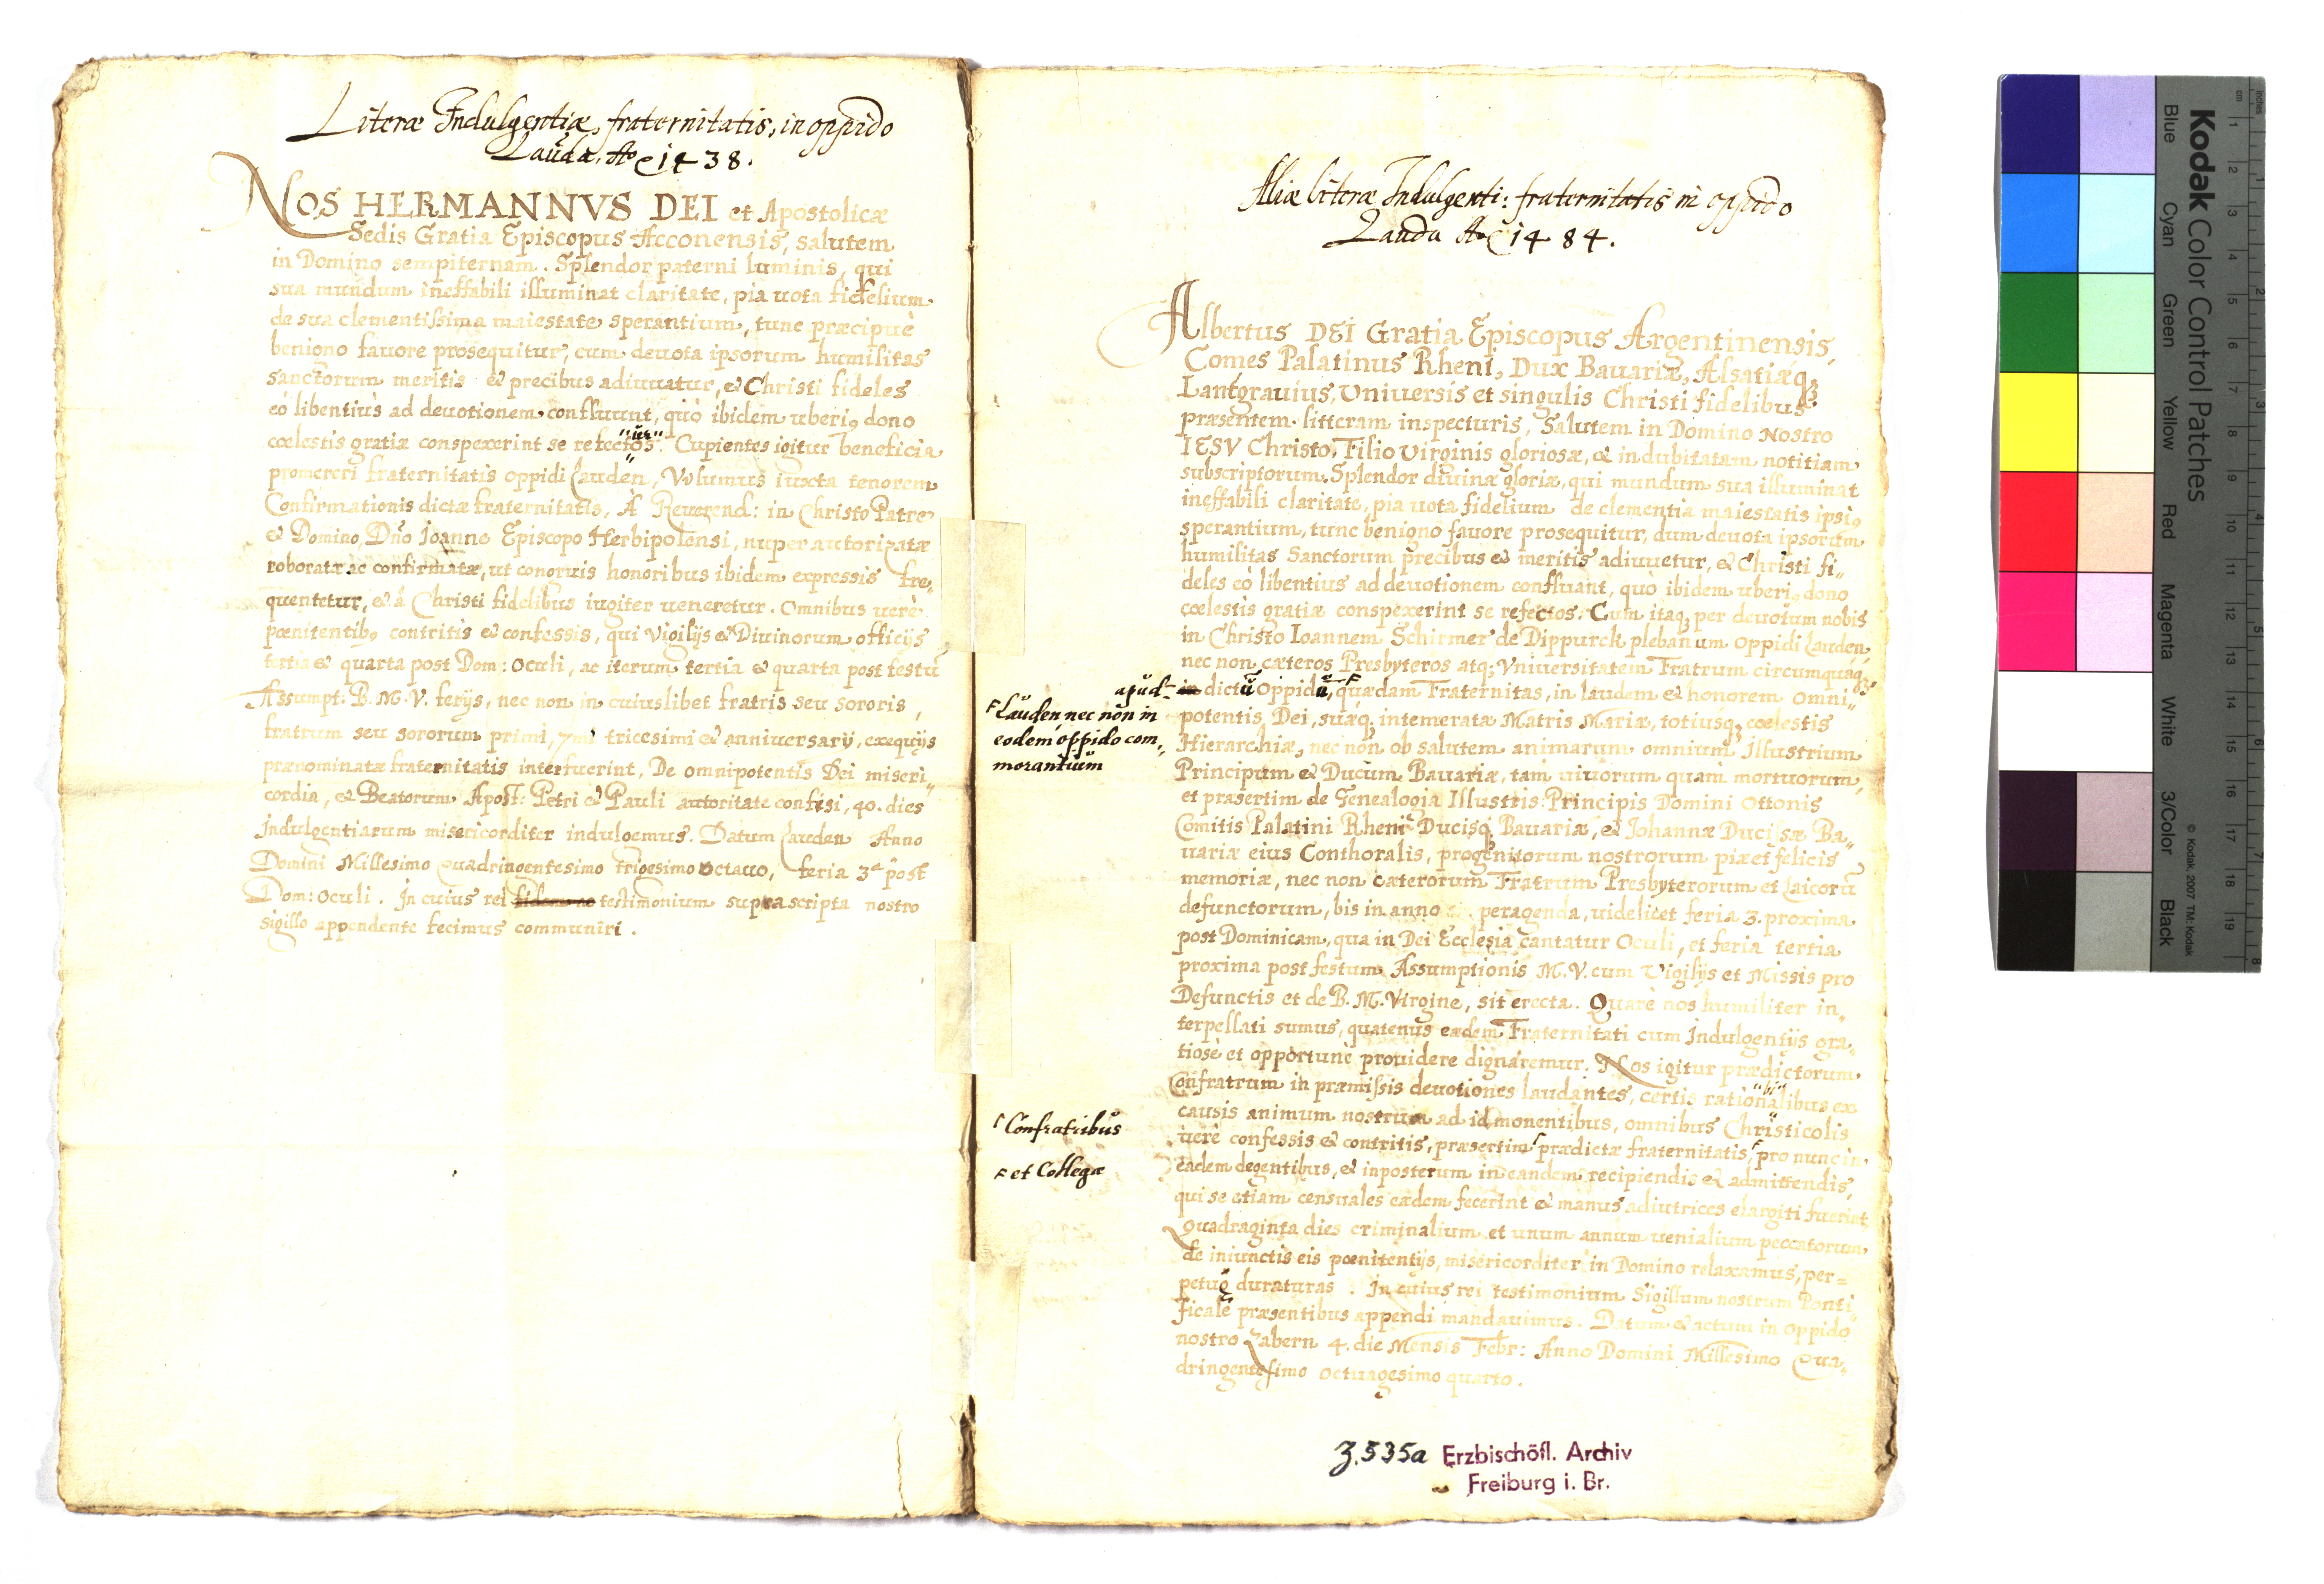 Literæ Indulgentiæ, fraternitatis, in oppido
Lauda. Ao 1438.
NOS HERMANNVS DEI et Apostolicæ
Sedis Gratia Episcopus Acconensis, salutem
in Domino sempiternam. Splendor paterni luminis, qui
sua mundum ineffabili illuminat claritate, pia uota fidelium
de sua clementissima maiestate sperantium, tunc præcipuè
benigno fauore prosequitur, cum deuota ipsorum humilitas
sanctorum meritis et precibus adiuuatur, et Christi fideles
eò libentiùs ad deuotionem confluunt, quò ibidem uberiꝰ dono
cœlestis gratiæ conspexerint se refectos. Cupientes igitur beneficia
promereri fraternitatis oppidi Lauden, Volumus iuxta tenorem
Confirmationis dictæ fraternitatis, A Reuerend: in Christo Patre
et Domino, Dño Joanne Episcopo Herbipolensi, nuper autorizatæ
roboratæ ac confirmatæ, ut congruis honoribus ibidem expressis fre„
quentetur, et á Christi fidelibus iugiter ueneretur. Omnibus uerè
pœnitentibꝰ contritis et confessis, qui Vigilijs et Diuinorum officijs
tertia et quarta post Dom: Oculi, ac iterum tertia et quarta post festū
Assumpt: B. M. V. ferijs, nec non in cuiuslibet fratris seu sororis,
fratrum seu sororum primi, 7mi tricesimi et anniuersarij, exequijs
prænominatæ fraternitatis interfuerint, De omnipotentis Dei miseri„
cordia, et Beatorum Apost: Petri et Pauli autoritate confisi, 40. dies
Indulgentiarum misericorditer indulgemus. Datum Lauden Anno
Domini Millesimo Quadringentesimo trigesimo octauo, feria 3a post
Dom: Oculi. In cuius rei fidem ac testimonium suprascripta nostro
sigillo appendente fecimus communiri.
Aliæ literæ Indulgenti: fraternitatis in oppido
Lauda Ao 1484.
Albertus DEI Gratia Episcopus Argentinensis,
Comes Palatinus Rheni, Dux Bauariæ, Alsatiæqꝫ
Lantgrauius, Vniuersis et singulis Christi fidelibus
præsentem litteram inspecturis, Salutem in Domino Nostro
IESV Christo, Filio Virginis gloriosæ, et indubitatam notitiam
subscriptorum. Splendor diuinæ gloriæ, qui mundum sua illuminat
ineffabili claritate, pia uota fidelium de clementia maiestatis ipsiꝰ
sperantium, tunc benigno fauore prosequitur, dum deuota ipsorum
humilitas Sanctorum precibus et meritis adiuuetur, et Christi fi„
deles eò libentius ad deuotionem confluant, quò ibidem uberiꝰ dono
cœlestis gratiæ conspexerint se refectos. Cum itaqꝫ per deuotum nobis
in Christo Ioannem Schirmer de Dippurck plebanum oppidi Lauden,
nec non cæteros Presbyteros atqꝫ Vniuersitatem Fratrum circumquaqꝫ
apud in dictū Oppidū, quædam Fraternitas, in laudem et honorem Omni„
Lauden, nec non in
eodem oppido com„
morantium
potentis Dei, suæqꝫ intemeratæ Matris Mariæ, totiusqꝫ cœlestis
Hierarchiæ, nec non ob salutem animarum omnium Illustrium
Principum et Ducum Bauariæ, tam uiuorum quam mortuorum,
et præsertim de Genealogia Illustris: Principis Domini Ottonis
Comitis Palatini Rheni Ducisqꝫ Bauariæ, et Johannæ Ducissæ Ba„
uariæ eius Conthoralis, progenitorum nostrorum piæ et felicis
memoriæ, nec non cæterorum Fratrum Presbyterorum et Laicorū
defunctorum, bis in anno peragenda, uidelicet feria 3. proxima
post Dominicam, qua in Dei Ecclesia cantatur Oculi, et feria tertia
proxima post festum Assumptionis M. V. cum Vigilijs et Missis pro
Defunctis et de B. M. Virgine, sit erecta. Quarè nos humiliter in„
terpellati sumus, quatenus eædem Fraternitati cum Indulgentijs gra„
tiosè et opportunè prouidere dignaremur. Nos igitur prædictorum
Confratrum in præmissis deuotiones laudantes, certis rationalibus ex
causis animum nostrum ad id monentibus, omnibus Christicolis
uerè confessis et contritis, præsertim prædictæ fraternitatis, pro nunc in
Confratribus
et Collegæ
eadem degentibus, et inposterum in eandem recipiendis et admittendis,
qui se etiam censuales eædem fecerint et manus adiutrices elargiti fuerint
Quadraginta dies criminalium et unum annum uenialium peccatorum
de iniunctis eis pœnitentijs, misericorditer in Domino relaxamus, per=
petuò duraturas. In cuius rei testimonium Sigillum nostrum Ponti„
ficale præsentibus appendi mandauimus. Datum et actum in Oppido
nostro Zabern 4. die Mensis Febr: Anno Domini Millesimo Qua„
dringentesimo octuagesimo quarto.
Z.535a Erzbischöfl. Archiv
Freiburg i. Br.
Kodak Color Control Patches
Blue Cyan Green Yellow Red Magenta White 3/Color Black
© Kodak, 2007 TM: Kodak
cm 1 2 3 4 5 6 7 8 9 10 11 12 13 14 15 16 17 18 19
inches 1 2 3 4 5 6 7 8